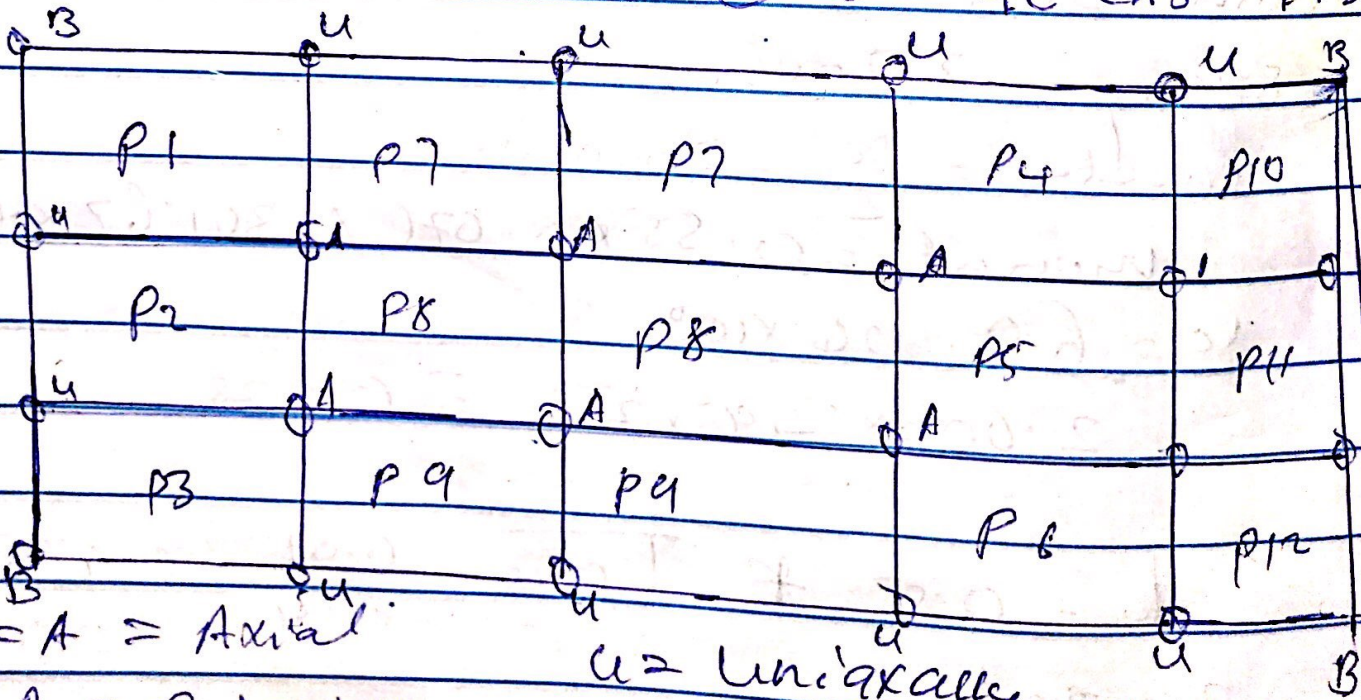 B u u u u B
P1 P7 P7 P4 P10
u A A A
P2 P8 P8 P5 P11
u A A A
P3 P9 P9 P6 P12
B u u u u B
= A = Axial
u = Uniaxally